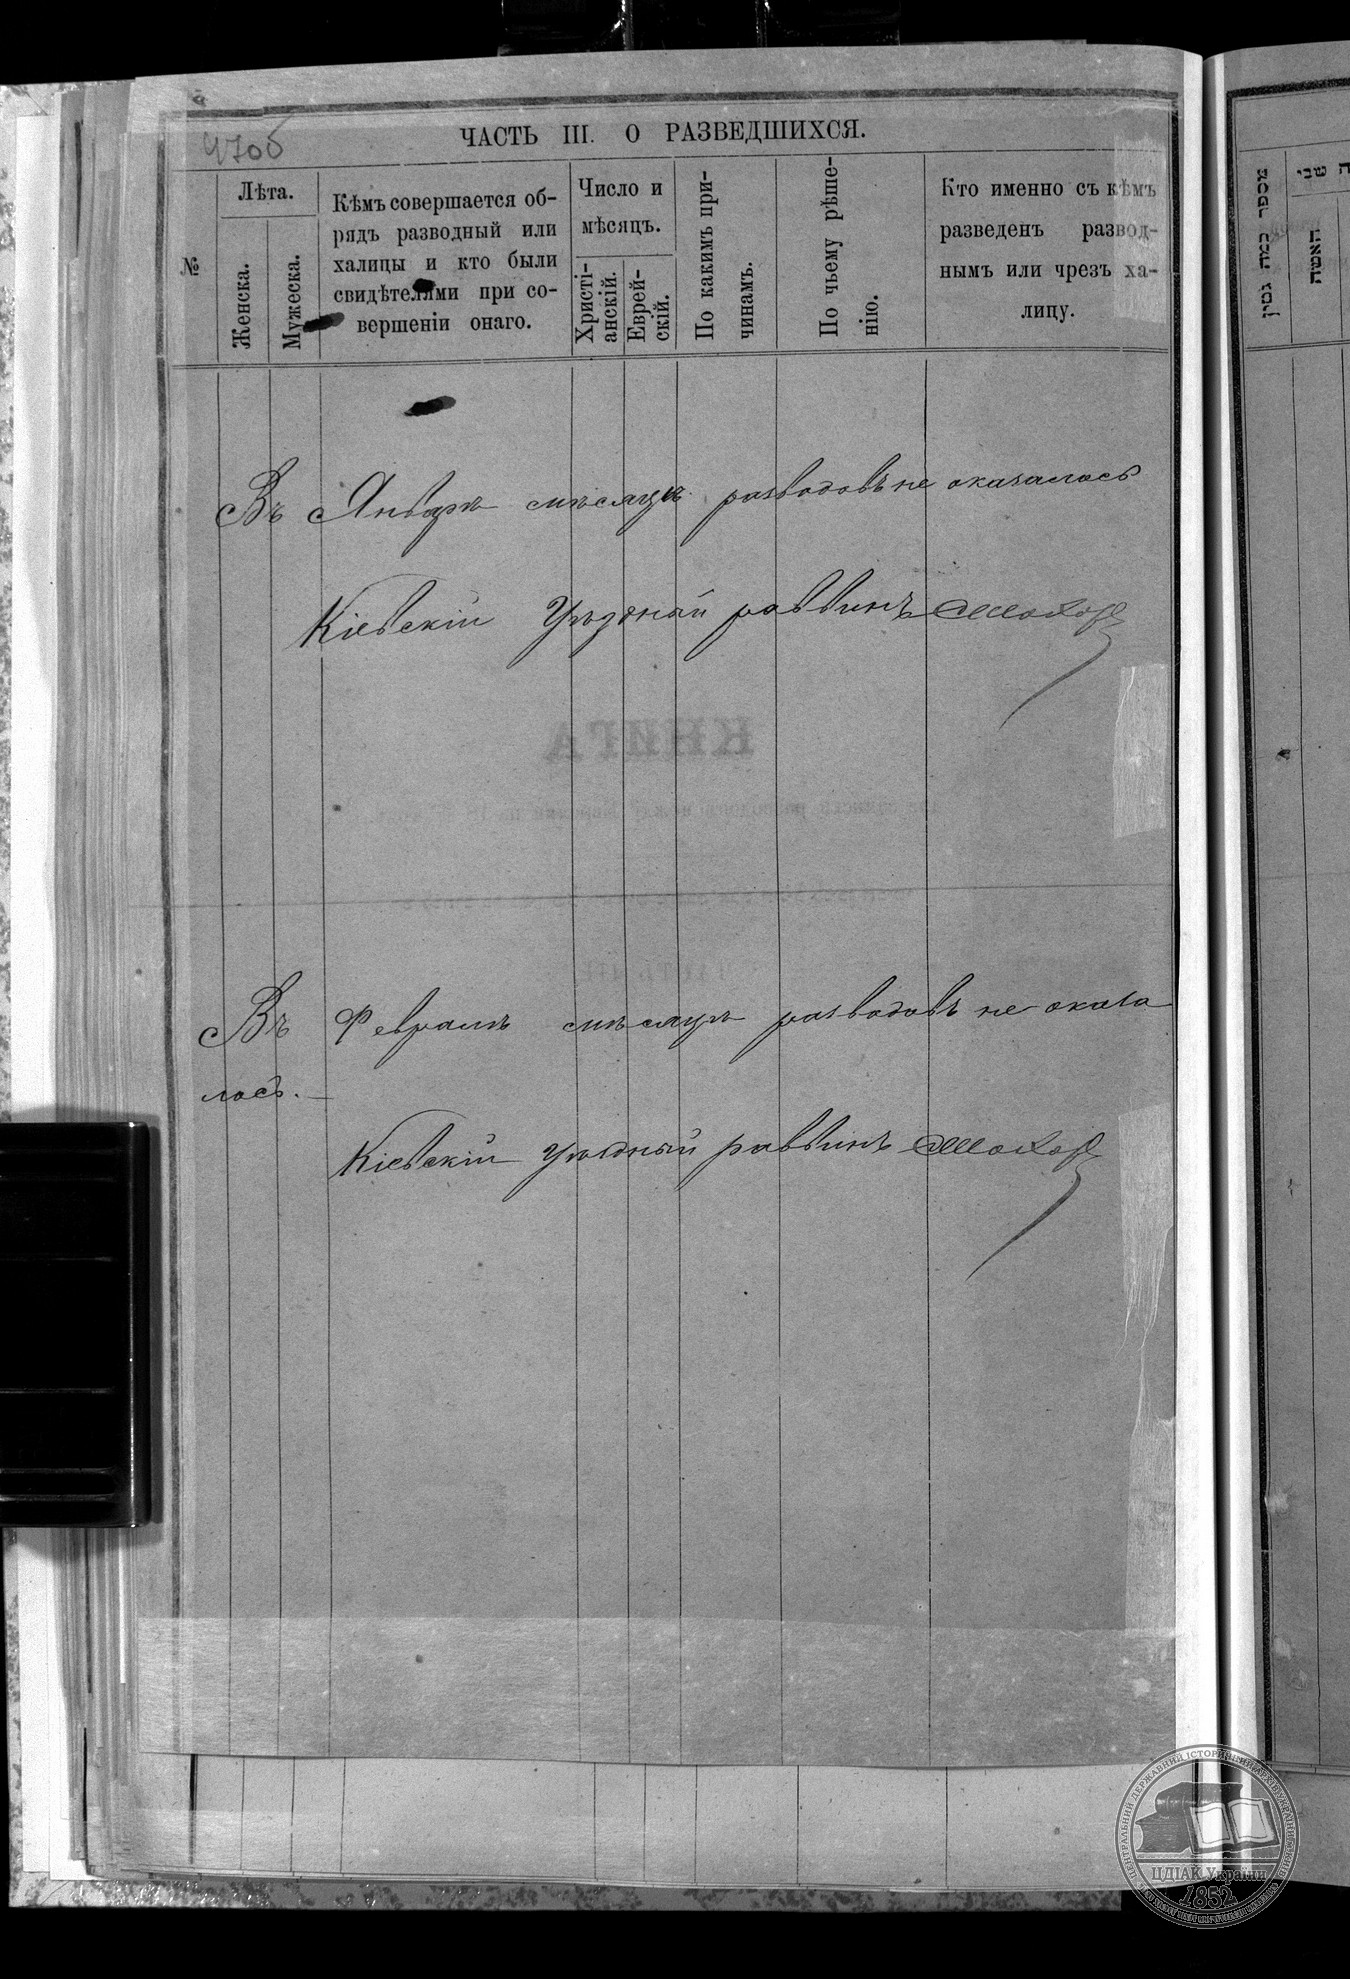 470б
ЧАСТЬ III. О РАЗВЕДШИХСЯ.
№
Лѣта.
Женска.
Мужеска.
Кѣмъ совершается об-
рядъ разводный или
халицы и кто были
свидѣтелями при со-
вершеніи онаго.
Число и
мѣсяцъ.
Христі-
анскій.
Еврей-
скій.
По какимъ при-
чинамъ.
По чьему рѣше-
нію.
Кто именно съ кѣмъ
разведенъ развод-
нымъ или чрезъ ха-
лицу.
Въ Январѣ мѣсяцѣ разводовъ не оказалось
Кіевскій Уѣздный раввинъ
КНИГА
Въ Февралѣ мѣсяцѣ разводовъ не оказа
лось.
Кіевскій Уѣздный раввинъ
מספר כמה גטין
האשה
שני
ЦЕНТРАЛЬНИЙ ДЕРЖАВНИЙ ІСТОРИЧНИЙ АРХІВ УКРАЇНИ
ЦДІАК України
1852